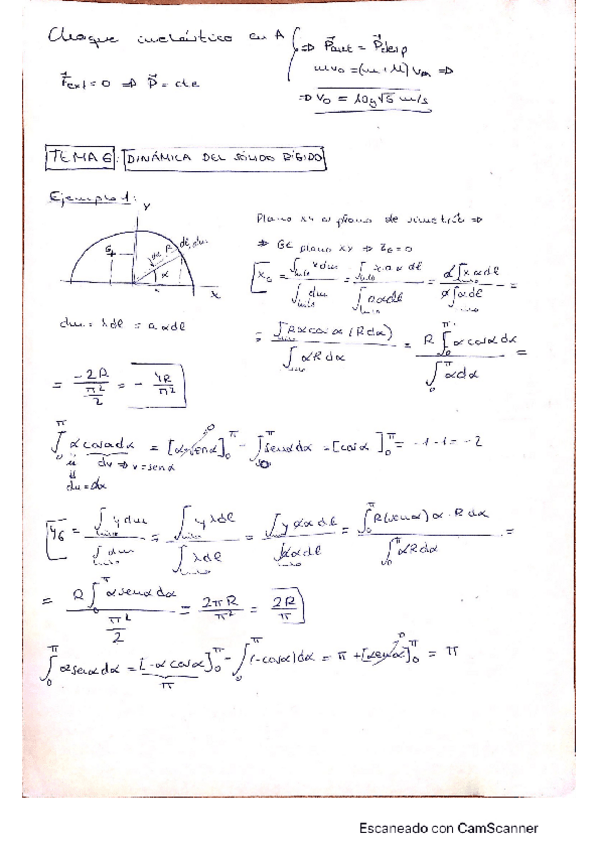 Choque inelástico en A { ⇒ P⃗ant = P⃗desp
F⃗ext = 0 ⇒ P⃗ = cte
mv₀ = (m + M) vm ⇒
⇒ v₀ = 10g√5 m/s
TEMA 6: DINÁMICA DEL SÓLIDO RÍGIDO
Ejemplo 1:
y
G
R
dl, dm
α
x
Plano xy es plano de simetría ⇒
⇒ G∈ plano xy ⇒ Z_G = 0
x_G = ∫x dm / ∫dm = ∫x a α dl / ∫a α dl = a∫x α dl / a∫α dl =
dm = λdl = a α dl
= ∫Rα cos α (R dα) / ∫αR dα = R ∫₀^π α cos α dα / ∫₀^π α dα =
= -2R / (π²/2) = - 4R/π²
∫₀^π α cos α dα = [α sen α]₀^π - ∫₀^π sen α dα = [cos α]₀^π = -1 -1 = -2
u dv ⇒ v = sen α
du = dα
y_G = ∫y dm / ∫dm = ∫y λdl / ∫λdl = ∫y a α dl / ∫a α dl = ∫₀^π R(sen α) α · R dα / ∫₀^π αR dα =
= R ∫₀^π α sen α dα / (π²/2) = 2πR/π² = 2R/π
∫₀^π α sen α dα = [-α cos α]₀^π - ∫₀^π (-cos α) dα = π + [sen α]₀^π = π
π
Escaneado con CamScanner